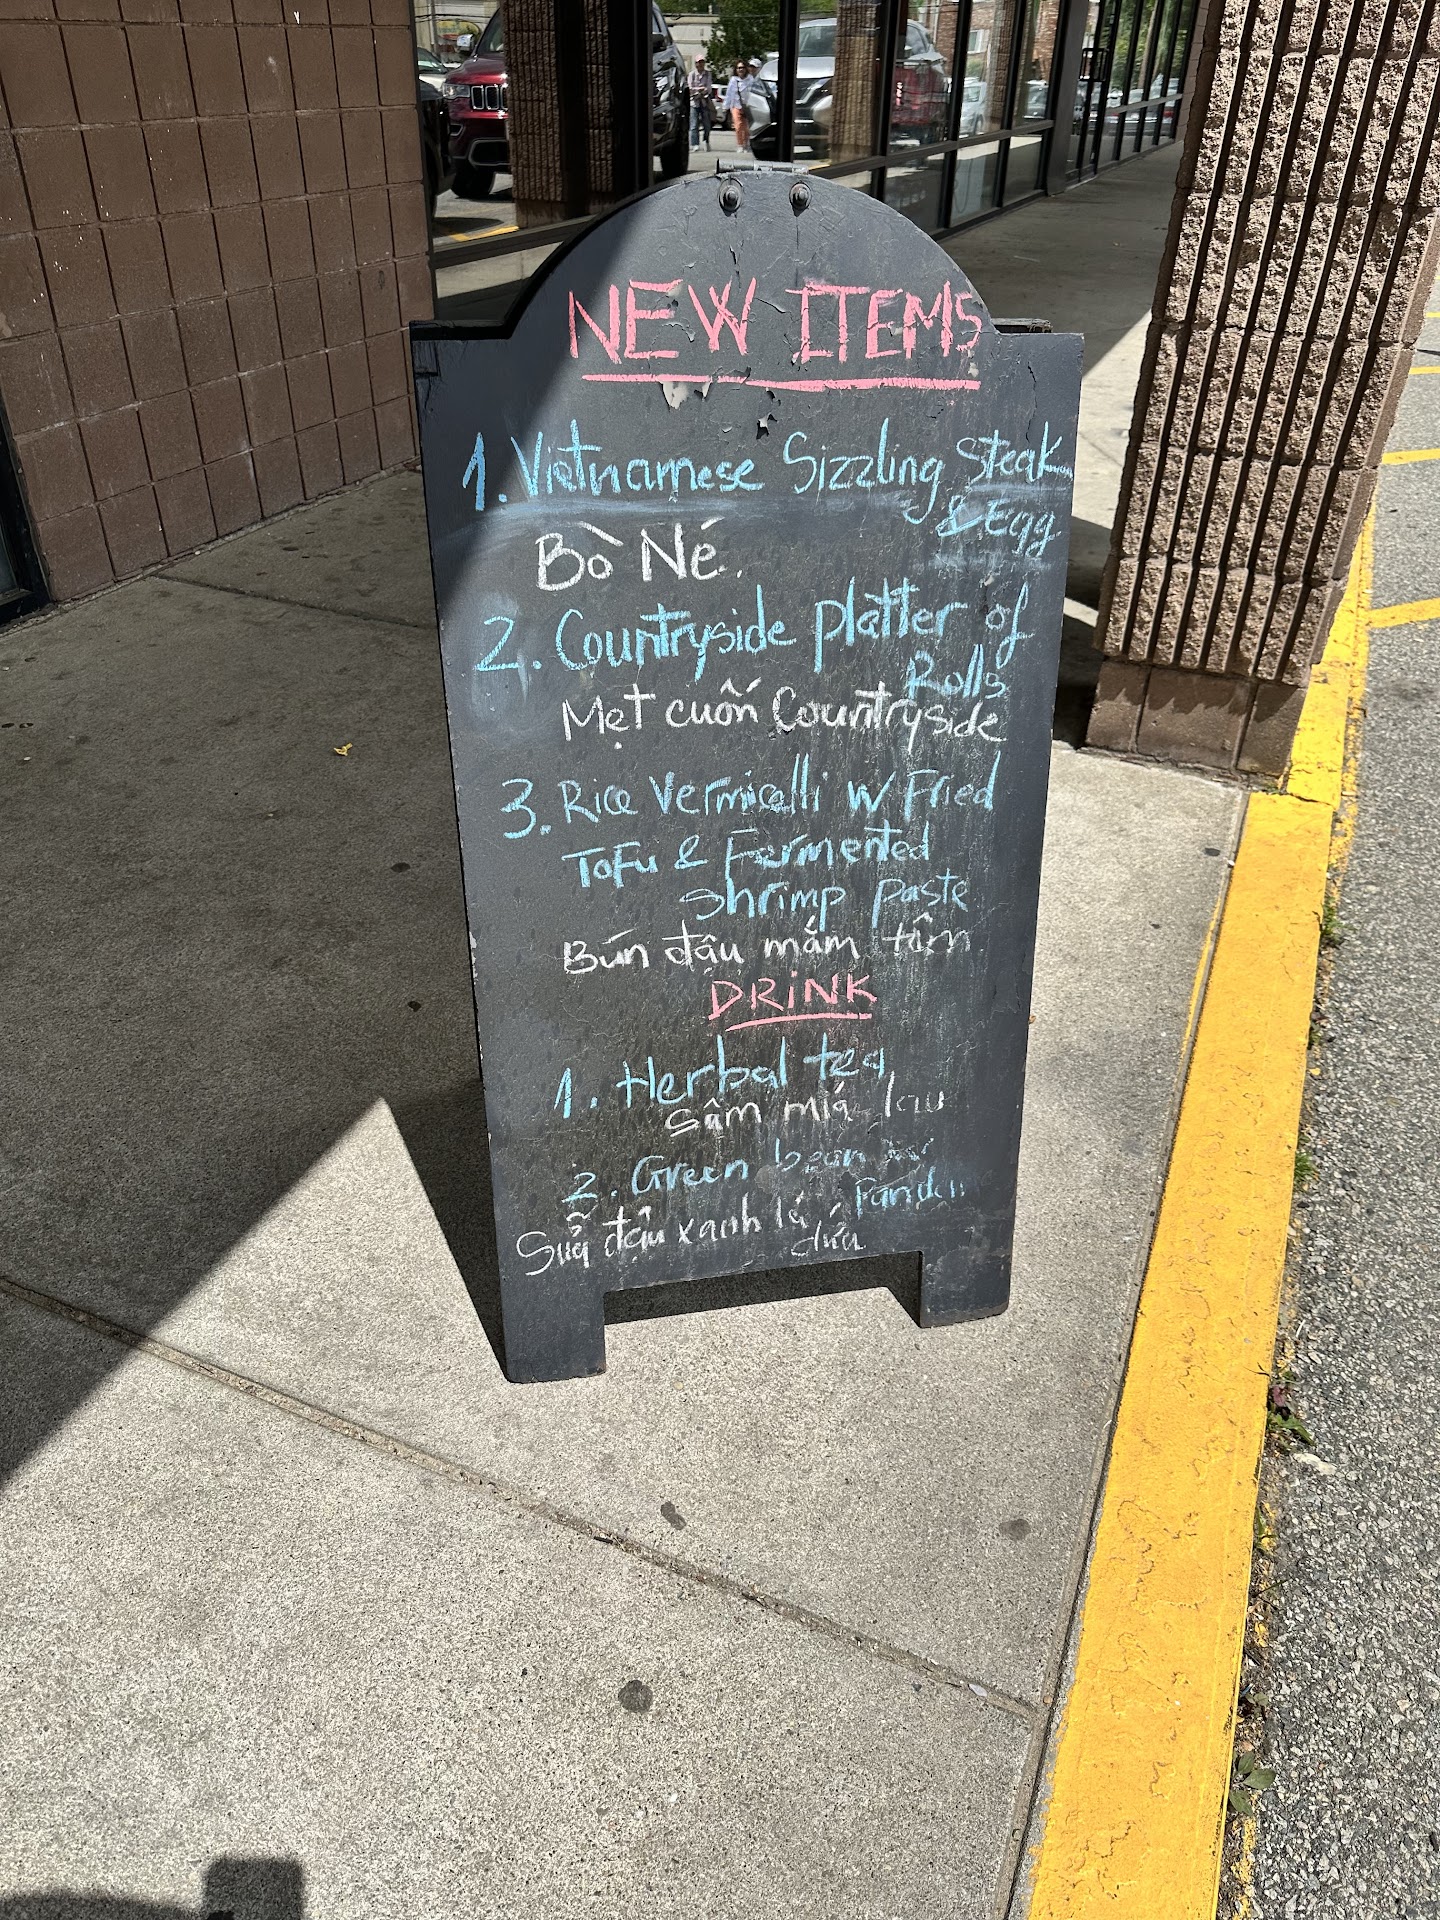 NEW ITEMS
1. Vietnamese Sizzling Steak
& Egg
Bò Né.
2. Countryside platter of
Rolls
Mẹt cuốn Countryside
3. Rice Vermicelli w Fried
Tofu & Fermented
shrimp paste
Bún đậu mắm tôm
DRiNK
1. Herbal tea
Sâm mía lau
2. Green bean
Pandan
Sữa đậu xanh lá
dứa